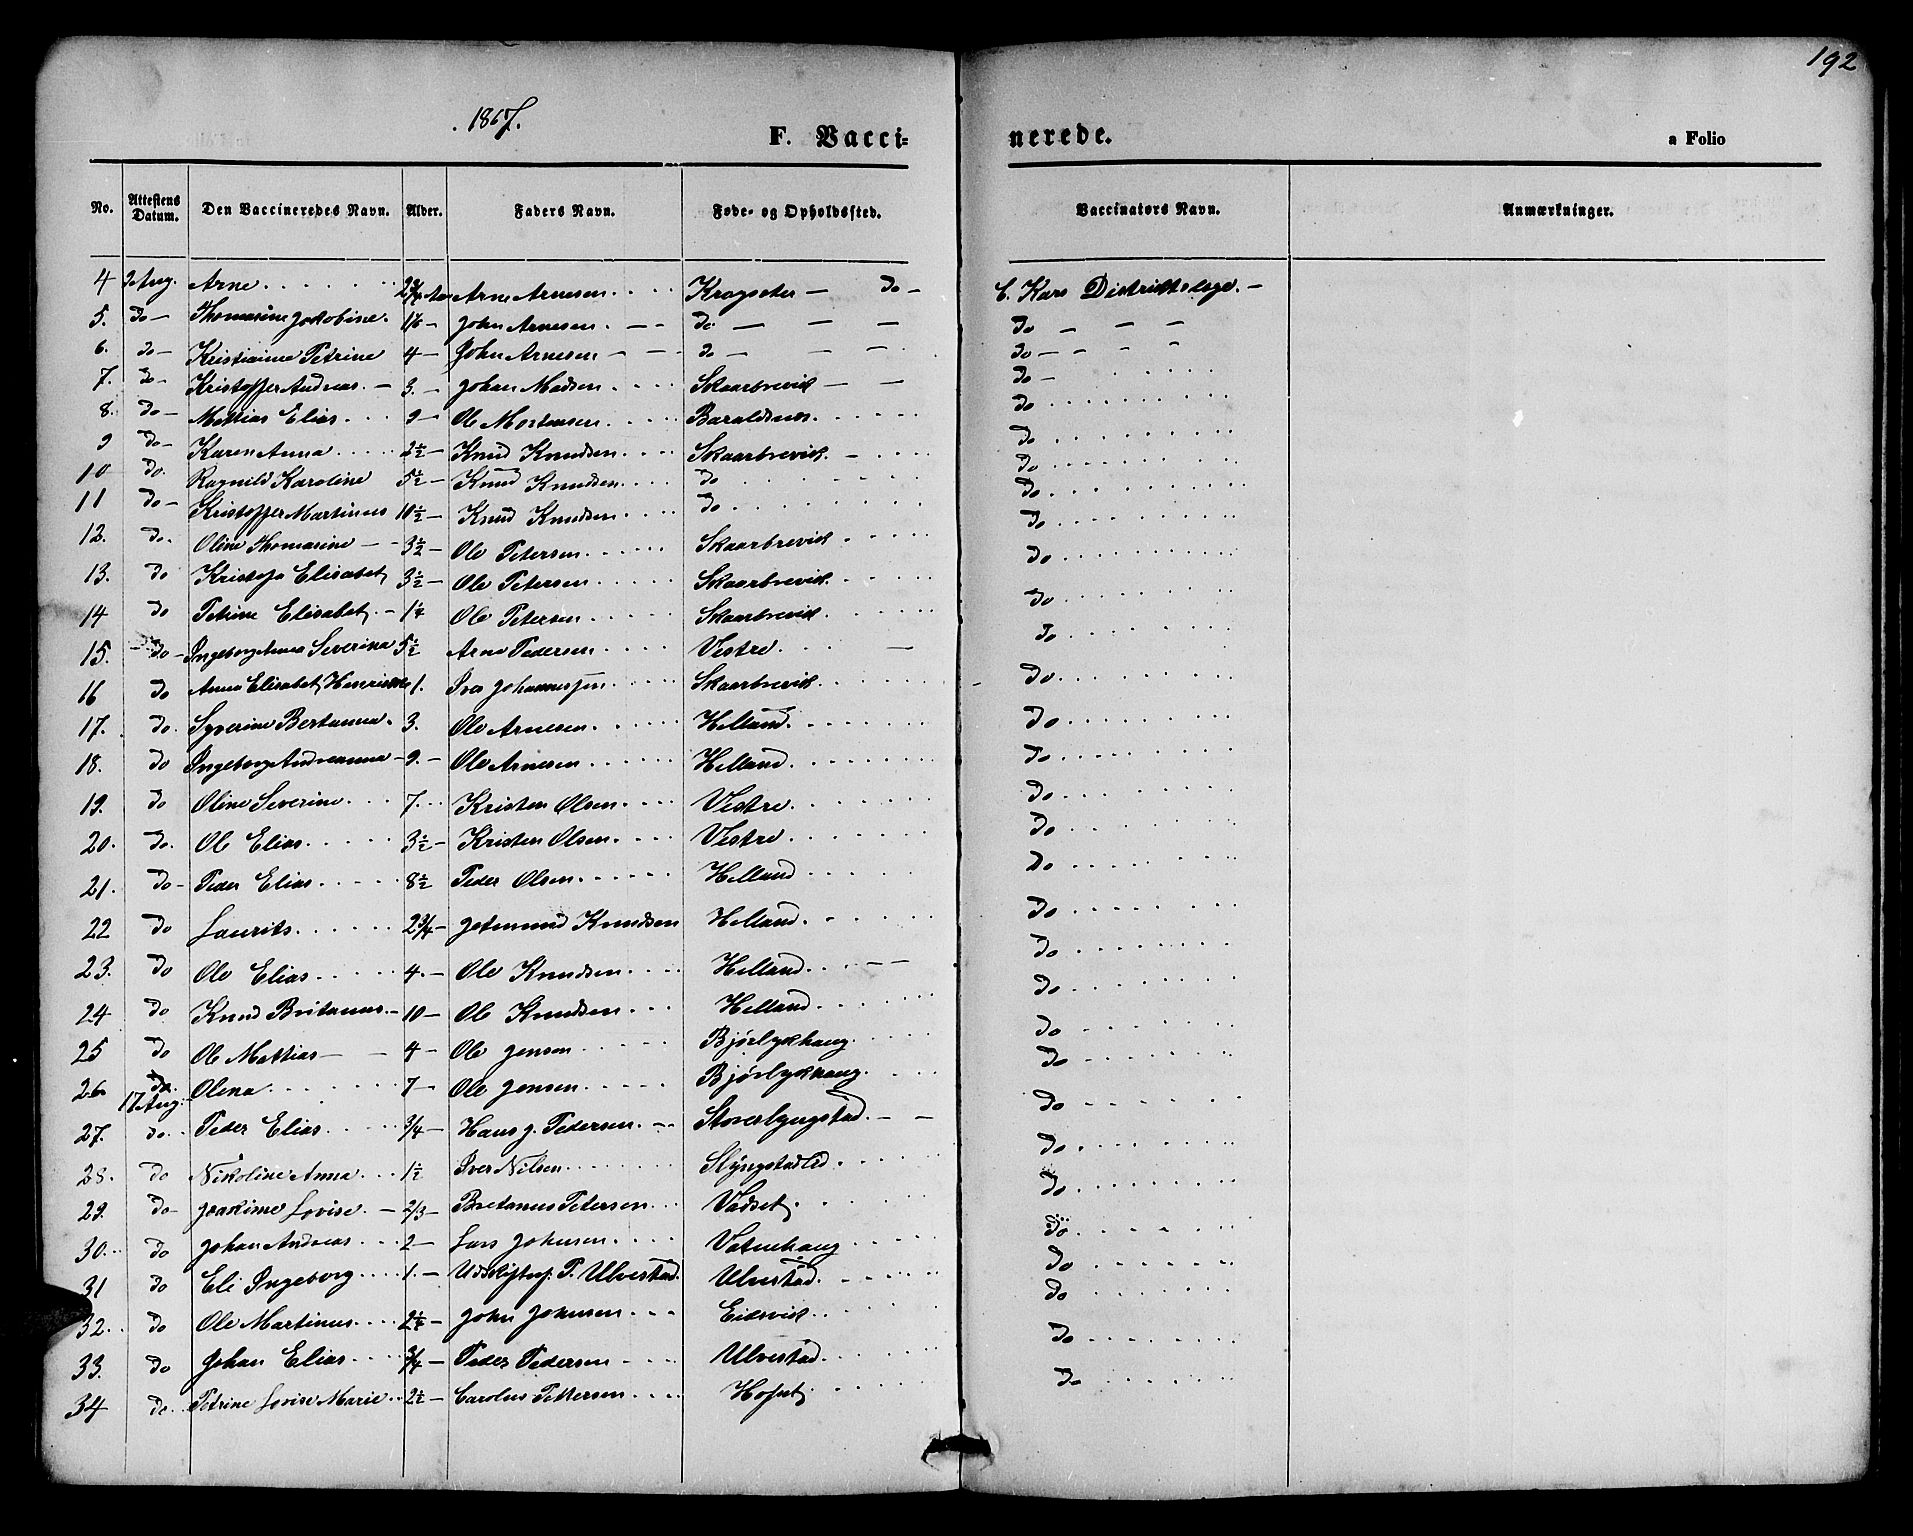 192
1867.
F. Vacci=nerede. a Folio
No. Attestens Datum. Den Vaccineredes Navn. Alder. Faders Navn. Føde- og Opholdssted. Vaccinators Navn. Anmærkninger.
4 2 Aug. Arne Arne Arnesen Kragseter — Do — C. Kars Distriktslæge. —
5. Do — Thomasine Jakobine. John Arnesen. Do — — — Do — — —
6. Do — Kristianna Petrine 4 — John Arnesen Do — — — Do — — —
7. Do — Kristoffer Andreas. — 3. — Johan Madsen Skaarbrevik — — Do —
8. Do — Mattias Elias. 9 — Ole Mortensen Baraldsnes. Do
9 Do — Karen Anna 2½ — Knud Knudsen Skaarbrevik. — Do
10 Do. Ragnild Karoline 5½ — Knud Knudsen Do Do
11 Do — Kristoffer Martinus 10½ — Knud Knudsen Do Do
12. Do. Oline Thomasine — 3½ — Ole Petersen Skaarbrevik Do
13. Do Kristofa Elisabet 3½ — Ole Petersen Skaarbrevik. Do
14 Do Petrine Elisabet. — 1¼ Ole Petersen Skaarbrevik Do
15. — Do — Ingeborg Anna Severina 5½ Arne Pedersen Vestre. — Do
16 Do Anna Elisabet Henrikke 1. Iver Johannessen Skaarbrevik Do
17. Do. Syverine Bertanna. 3. Ole Arnesen Helland. Do
18. Do Ingeborg Andreanna — 9. — Ole Arnesen Helland. Do
19. Do Oline Severine 7. Kristen Olsen. Vestre. Do
20. Do. Ole Elias. 3½ — Kristen Olsen. Vestre Do
21. Do — Peder Elias. 8½ Peder Olsen. Helland Do
22 Do Laurits. 2¾ — Jetmund Knudsen Helland. Do
23. Do Ole Elias 4. — Ole Knudsen Helland. — — Do
24 Do Knud Britanus. — 10 — Ole Knudsen Helland Do
25 Do Ole Mattias — — 4 — Ole Jensen Bjørlykhaug. Do
26 Do. Olina. 7 — Ole Jensen Bjørlykhaug. Do
17 Aug.
27. Do. Peder Elias. ¾ — Hans J. Pedersen. — Storelyngstad. — — Do
28. Do Nikoline Anna 1½ Iver Nilsen Slyngstadlid. Do
29. Do — Joakime Lovise. — 2/3 — Bretanus Petersen Vadset. Do
30. Do Johan Andreas 2 — Lars Johnsen Vatnehaug Do
31 Do Eli Ingeborg 1. — P. Ulvestad. Ulvestad. Do
32. Do Ole Martinus. 2¼ — John Johnsen Eidsvik. Do
33. Do Johan Elias ¾ — Peder Pedersen Ulvestad. Do
34 Do. Petrine Lovise Marie 2½ — Carolus Pettersen Hofset. Do